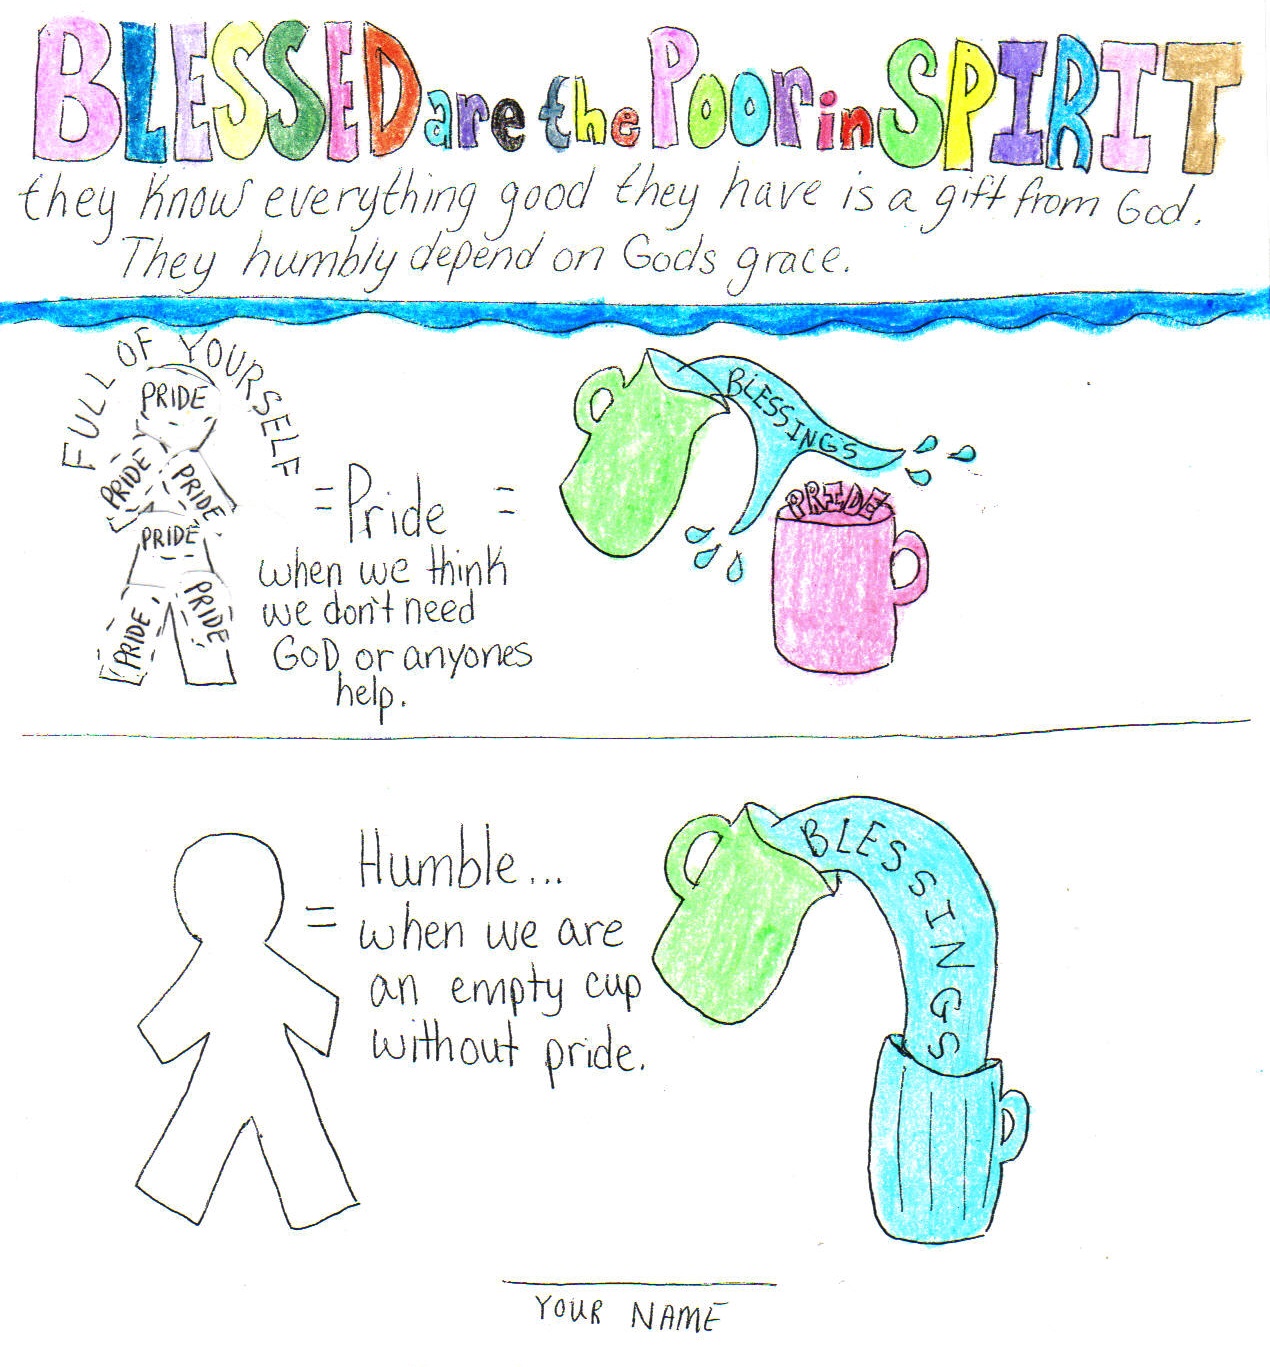 BLESSED are the Poor in SPIRIT
they know everything good they have is a gift from God.
They humbly depend on Gods grace.
FULL OF YOURSELF
PRIDE
PRIDE
PRIDE
PRIDE
PRIDE
PRIDE
= Pride =
when we think
we don't need
GOD or anyones
help.
BLESSINGS
PRIDE
= Humble...
when we are
an empty cup
without pride.
BLESSINGS
YOUR NAME